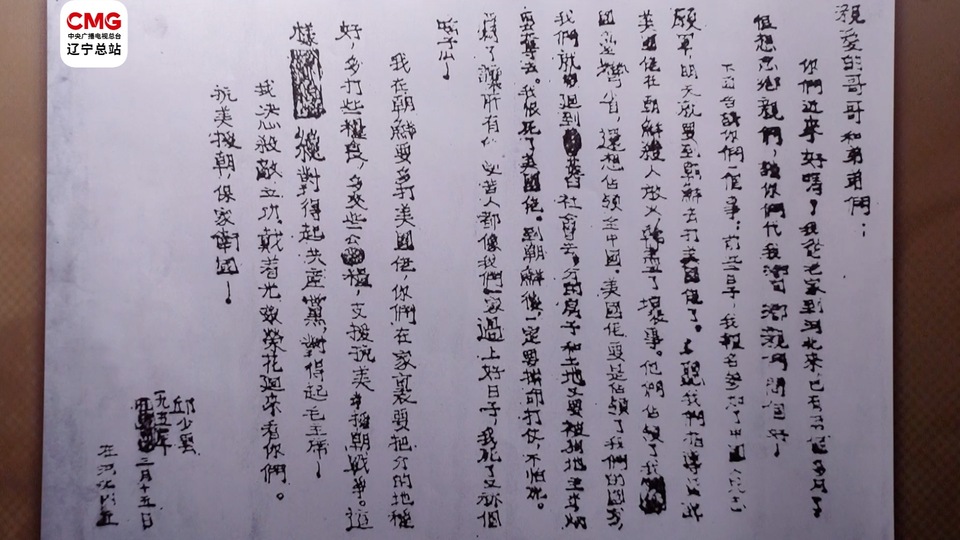 CMG
中央广播电视总台
辽宁总站
親爱的哥哥和弟弟們：
你們近來好嗎？我從老家到河北來已有
但想念鄉親們，請你們代我
下面告訴你們一個事：前些日子，我報名参加了中國
願軍，明天就要到朝鮮去打美國佬了。上聽我們指導員説
美國佬在朝鮮殺人放火，幹盡了壞事。他們佔領了我
國台灣省，還想佔領全中國。美國佬要是佔領了我們的國家，
我們就要退到舊社會去，分的房子和土地又要被地主
去。我恨死了美國佬。到朝鮮後，一定要打仗不怕死。
爲了讓所有受苦人都像我們家過上好日子，我死了又算個
啥子么！
我在朝鮮要多打美國佬，你們在家裏要把分的地種
好，多打些糧食，多交些公糧，支援抗美援朝戰爭。這
樣纔對得起共産黨，對得起毛主席！
我決心殺敵立功，戴着光榮花迴來看你們。
抗美援朝保家衛國！
邱少雲
一九五一年
三月十五日